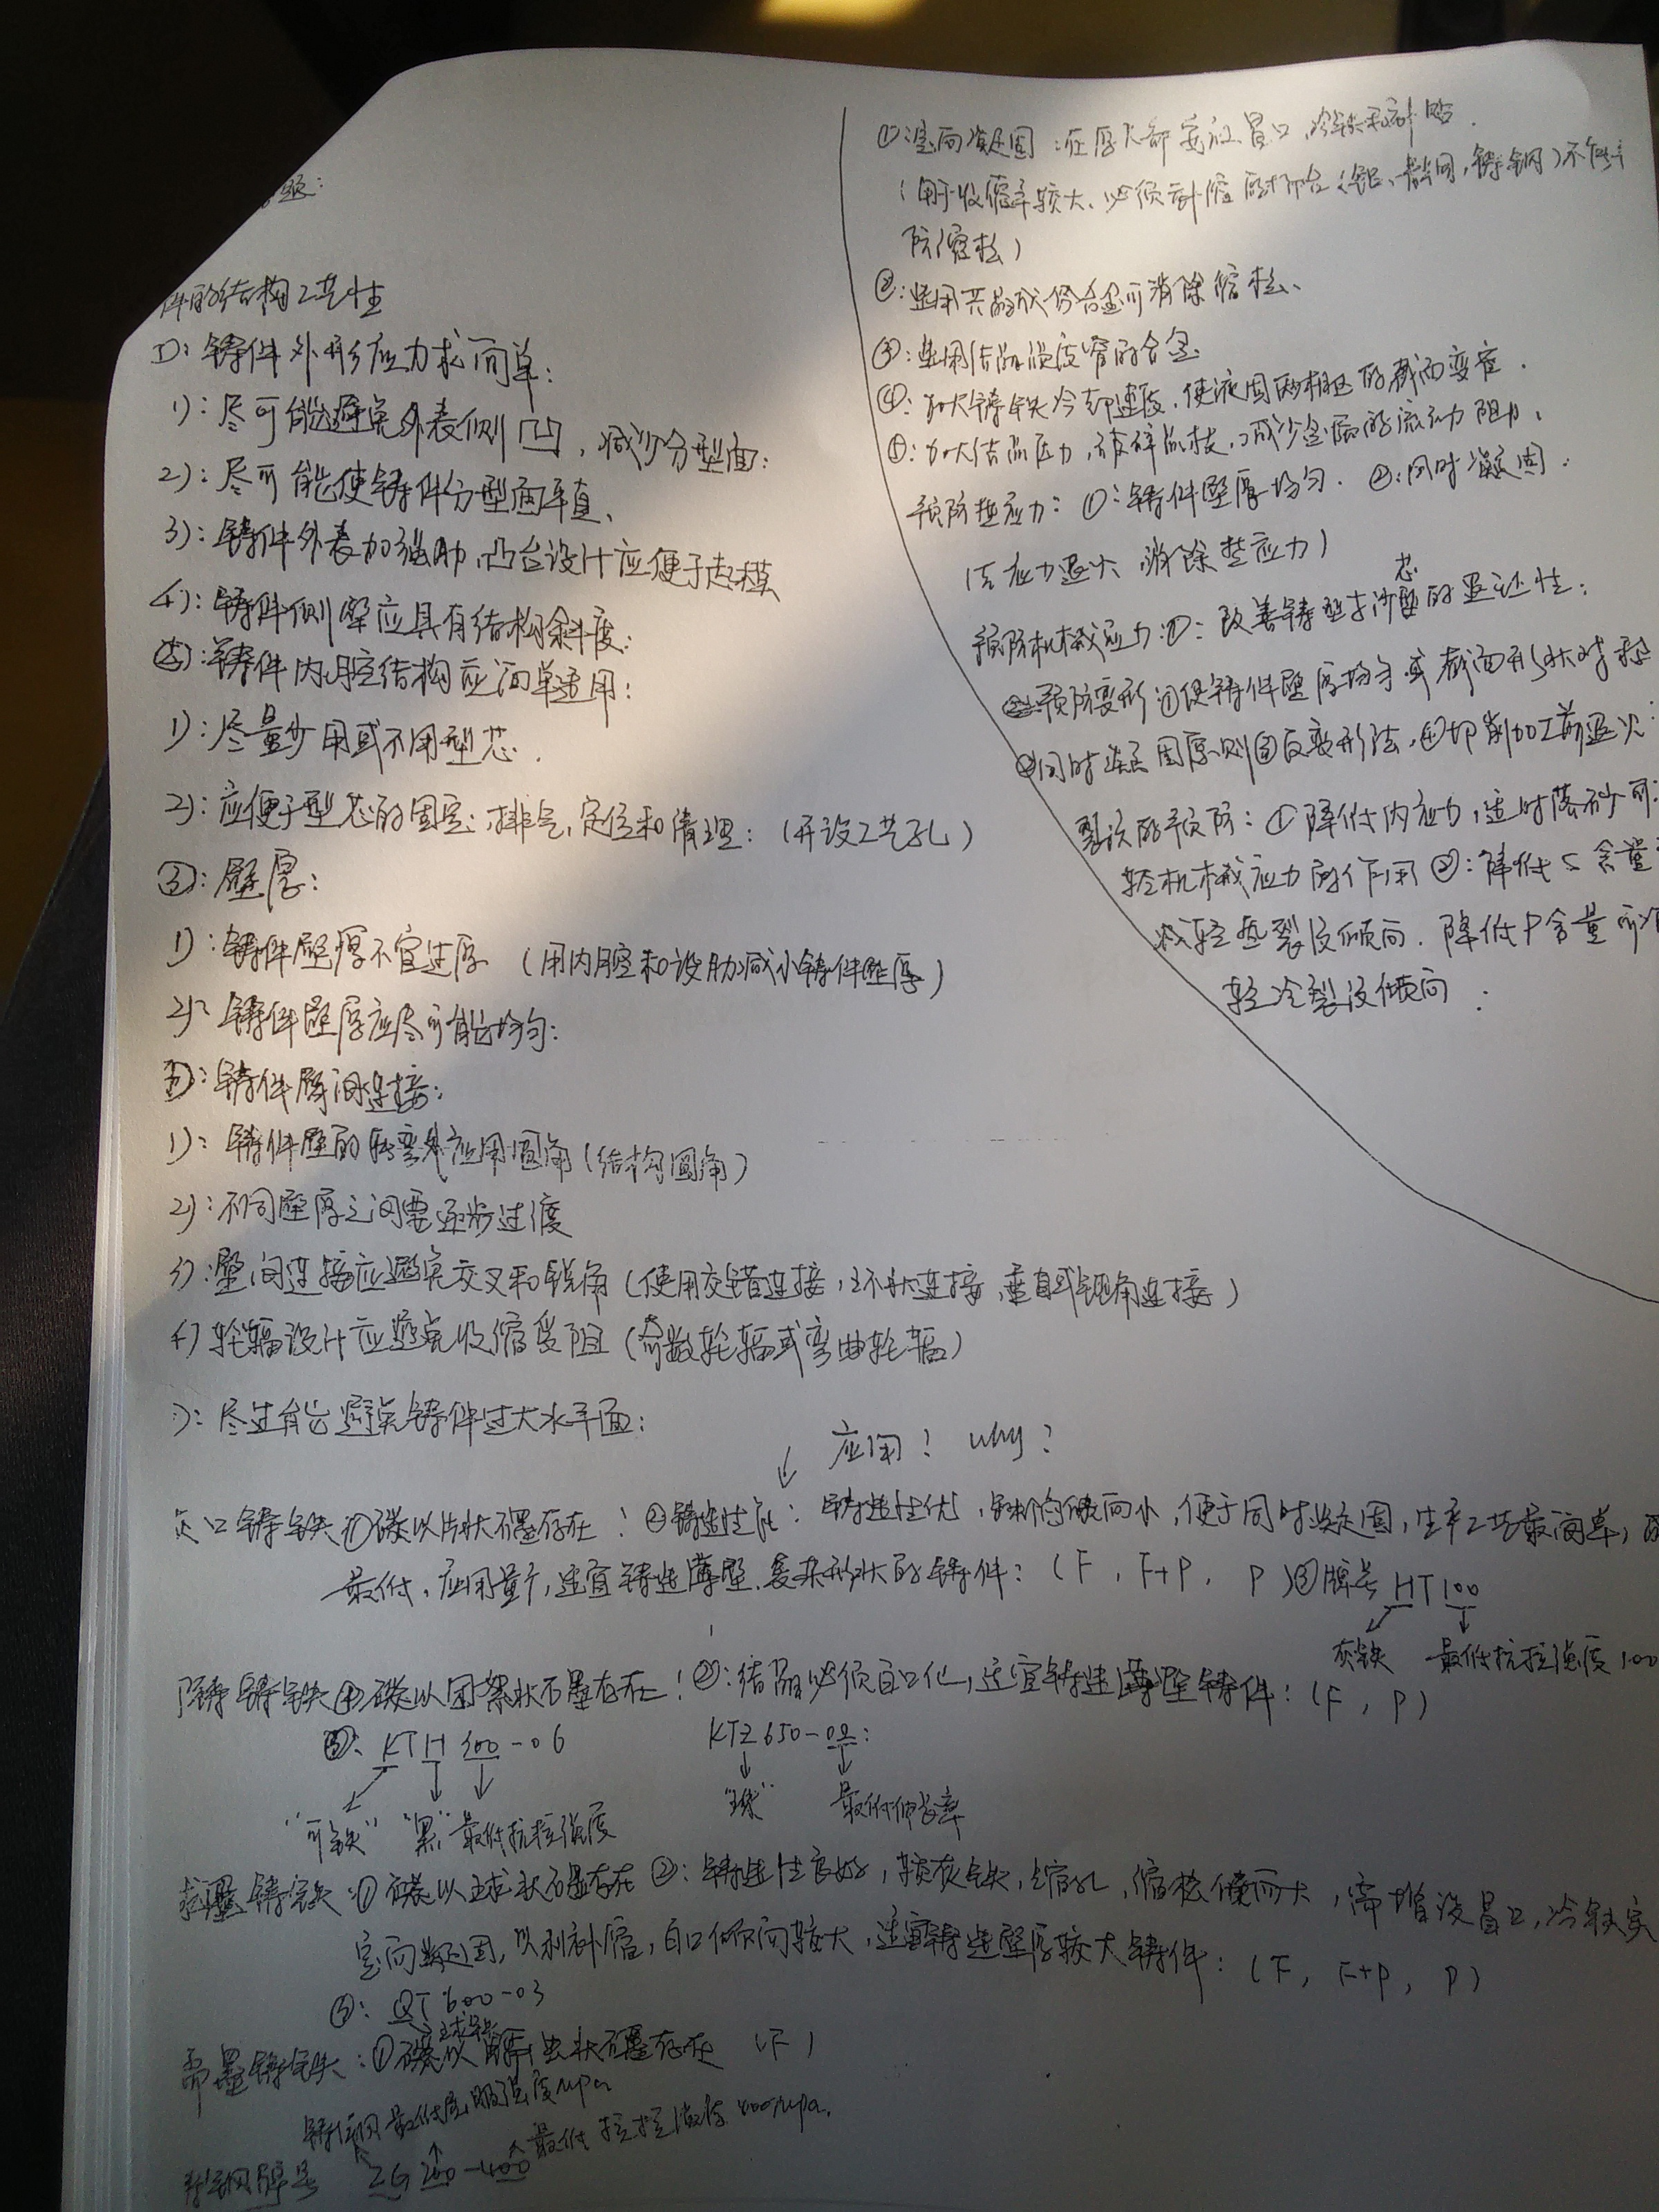 题:
件的结构工艺性
①:铸件外形应力求简单:
1):尽可能避免外表侧凹,减少分型面:
2):尽可能使铸件分型面平直、
3):铸件外表加强肋,凸台设计应便于起模
4):铸件侧壁应具有结构斜度:
②:铸件内腔结构应简单适用:
1):尽量少用或不用型芯.
2):应便于型芯的固定,排气,定位和清理:(开设工艺孔)
③:壁厚:
1):铸件壁厚不宜过厚 (用内腔和设肋减小铸件壁厚)
2):铸件壁厚应尽可能均匀:
铸件壁间连接:
1):铸件壁的转弯处应用圆角(结构圆角)
2):不同壁厚之间要逐步过渡
3):壁间连接应避免交叉和锐角(使用交错连接,环状连接,垂直或钝角连接)
4)轮辐设计应避免收缩受阻(奇数轮辐或弯曲轮辐)
):尽过能避免铸件过大水平面:
①:定向凝固:在厚大部安放冒口,冷铁和补贴.
(用于收缩率较大、必须补缩的合金(铝、青铜,铸钢)不能
防缩松)
②:选用共晶成份合金可消除缩松、
③:选用结晶温度窄的合金
④:加大铸铁冷却速度,使液固两相区的截面变窄.
①:加大结晶压力,破碎晶枝,减少金属的流动力阻力.
预防热应力:①:铸件壁厚均匀.②:同时凝固.
(去应力退火 消除热应力)
预防机械应力:①:改善铸型于沙芯的退让性:
预防变形①使铸件壁厚均匀或截面形状对称
②同时凝固原则③反变形法,④切削加工前退火
裂纹的预防:①降低内应力,适时落砂可
轻机械应力的作用②:降低S含量
减轻热裂纹倾向.降低P含量可
轻冷裂纹倾向.
应用? why?
灰口铸铁①碳以片状石墨存在!②铸造性能:铸造性优,缺陷倾向小,便于同时凝固,生产工艺最简单,
最低,应用量广,适宜铸造薄壁、复杂形状的铸件:(F,F+P,P)③牌号HT100
灰铁 最低抗拉强度100
铸铁①碳以团絮状石墨存在!②:结晶必须白口化,适宜铸造薄壁铸件:(F,P)
③:KTH 300-06 KTZ 650-02:
"可铁" "黑"最低抗拉强度 "珠" 最低伸长率
球墨铸铁①碳以球状石墨存在②:铸造性良好,较灰铁,缩孔,缩松倾向大,需增设冒口,冷铁实
定向凝固,以利补缩,白口倾向较大,适宜铸造壁厚较大铸件:(F,F+P,P)
③:QT 600-03
球铁
墨铸铁:①碳以蠕虫状石墨存在 (F)
铸钢 最低屈服强度Mpa
最低抗拉强度400Mpa.
铸钢牌号 ZG 200-400